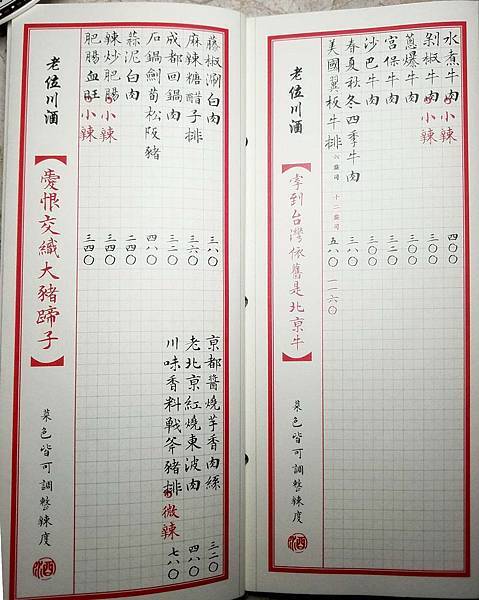 水煮牛肉 小辣 四〇〇
剁椒牛肉 小辣 三〇〇
蔥爆牛肉 三〇〇
宮保牛肉 三二〇
沙巴牛肉 三〇〇
春夏秋冬四季牛肉 三〇〇
美國翼板牛排 六盎司 五八〇 十二盎司 一一六〇
老位川酒
【拿到台灣依舊是北京牛】
菜色皆可調整辣度
藤椒涮白肉 三八〇
麻辣糖醋子排 三六〇
成都回鍋肉 三二〇
石鍋劍筍松阪豬 四八〇
蒜泥白肉 二四〇
辣炒肥腸 小辣 三四〇
肥腸血旺 小辣 三四〇
京都醬燒芋香肉絲 三二〇
老北京紅燒東波肉 四八〇
川味香料戰斧豬排 微辣 七八〇
老位川酒
【愛恨交織大豬蹄子】
菜色皆可調整辣度